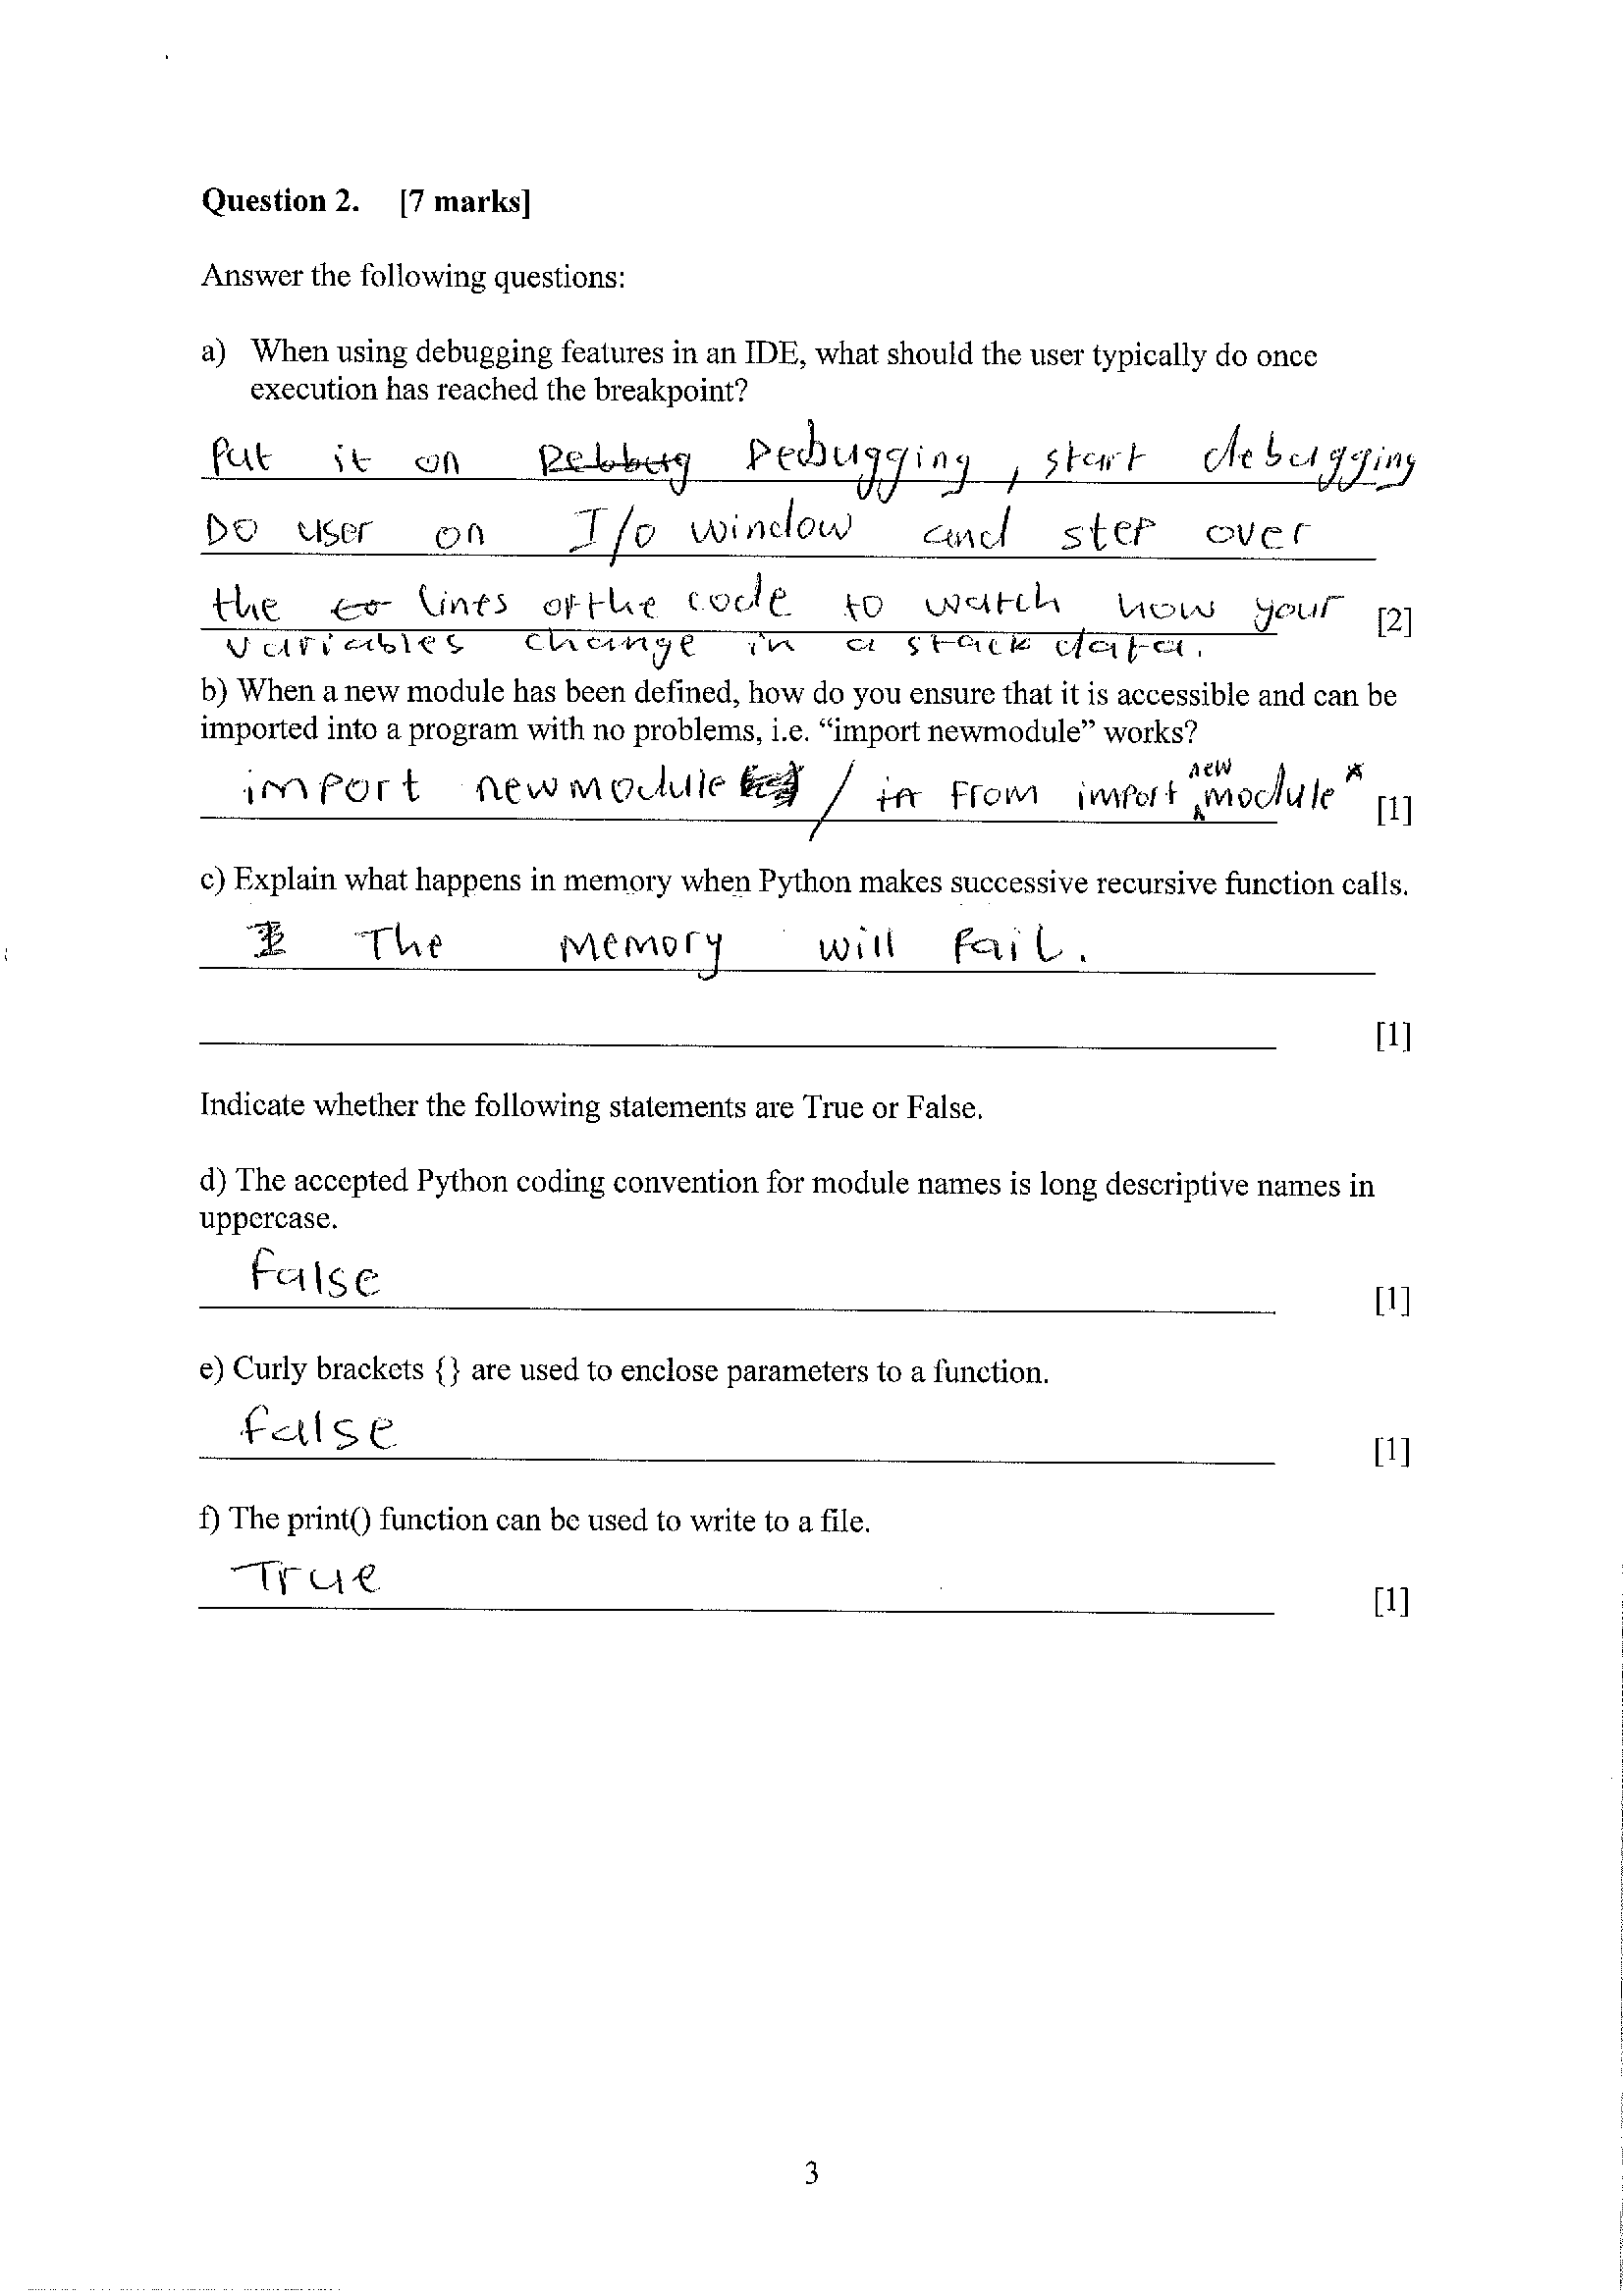 Question 2. [7 marks]
Answer the following questions:
a) When using debugging features in an IDE, what should the user typically do once
execution has reached the breakpoint?
Put it on Debbug Debugging, start debugging
Do user on I/O window and step over
the co lines of the code to watch how your [2]
variables change in a stack data.
b) When a new module has been defined, how do you ensure that it is accessible and can be
imported into a program with no problems, i.e. “import newmodule” works?
import newmodule / in from import new module * [1]
c) Explain what happens in memory when Python makes successive recursive function calls.
The memory will fail.
[1]
Indicate whether the following statements are True or False.
d) The accepted Python coding convention for module names is long descriptive names in
uppercase.
False [1]
e) Curly brackets {} are used to enclose parameters to a function.
False [1]
f) The print() function can be used to write to a file.
True [1]
3